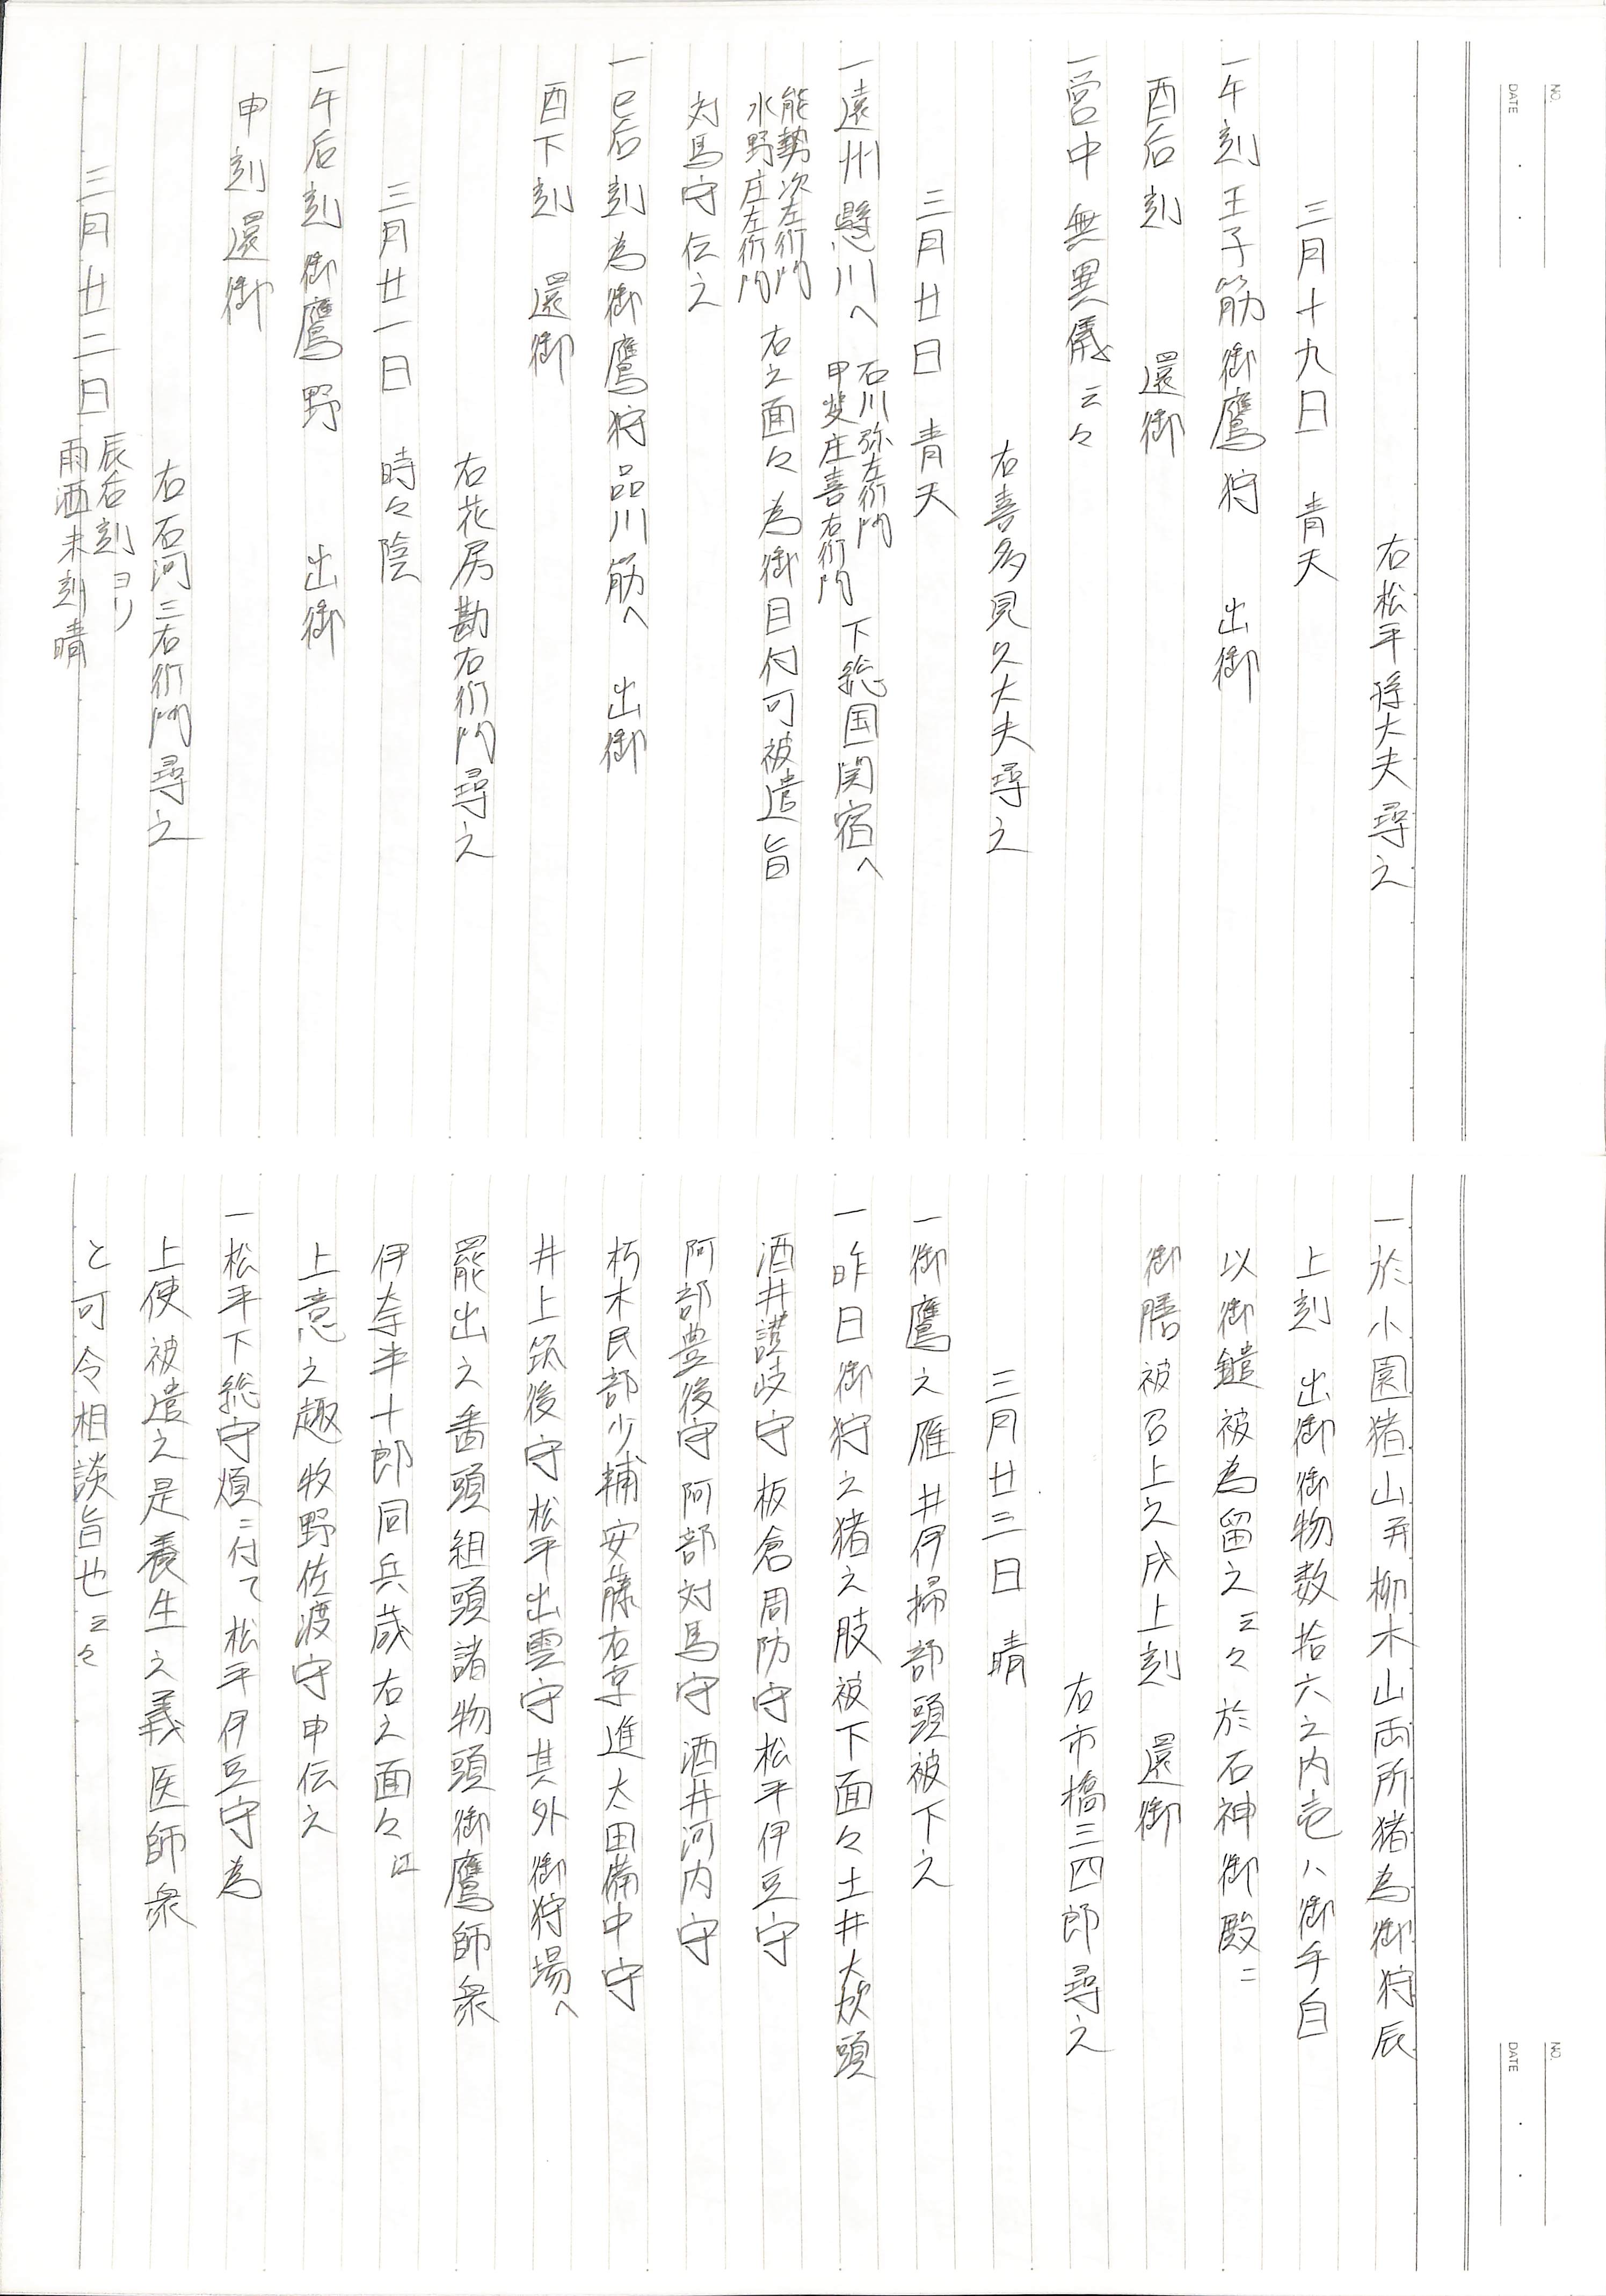 NO.
DATE
右松平将大夫尋之
三月十九日 青天
一午刻王子筋御鷹狩 出御
酉后刻 還御
一営中無異儀云々
右喜多見久大夫尋之
三月廿日 青天
一遠州懸川へ 石川弥左衛門 甲斐庄喜右衛門 下総国関宿へ
能勢次左衛門 水野庄左衛門 右之面々為御目付可被遣旨
対馬守伝之
一巳后刻為御鷹狩品川筋へ 出御
酉下刻 還御
右花房勘右衛門尋之
三月廿一日 時々陰
一午后刻御鷹野 出御
申刻還御
右石河三右衛門尋之
三月廿二日 辰后刻ヨリ 雨洒未刻晴
NO.
DATE
一於小園猪山并柳木山両所猪為御狩辰
上刻 出御御物数拾六之内壱ハ御手自
以御鑓被為留之云々於石神御殿ニ
御膳被召上之戌上刻 還御
右市橋三四郎尋之
三月廿三日 晴
一御鷹之雁井伊掃部頭被下之
一昨日御狩之猪之肢被下面々土井大炊頭
酒井讃岐守板倉周防守松平伊豆守
阿部豊後守阿部対馬守酒井河内守
朽木民部少輔安藤右京進太田備中守
井上筑後守松平出雲守其外御狩場へ
罷出之番頭組頭諸物頭御鷹師衆
伊奈半十郎同兵蔵右之面々江
上意之趣牧野佐渡守申伝之
一松平下総守煩ニ付て松平伊豆守為
上使被遣之是養生之義医師衆
と可令相談旨也云々